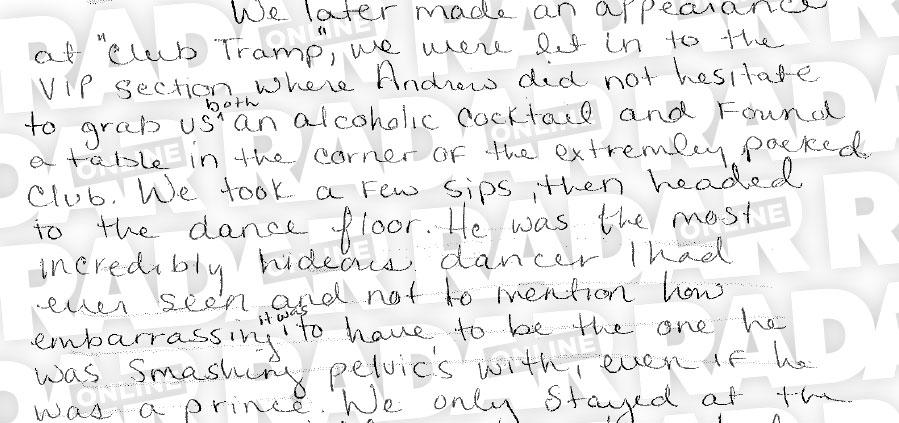 We later made an appearance
at "Club Tramp", we were let in to the
VIP section, where Andrew did not hesitate
to grab us both an alcoholic cocktail and found
a table in the corner of the extremley packed
club. We took a few sips, then headed
to the dance floor. He was the most
incredibly hideous dancer I had
ever seen and not to mention how
embarrassing it was to have to be the one he
was smashing pelvic's with, even if he
was a prince. We only stayed at the
RADAR ONLINE